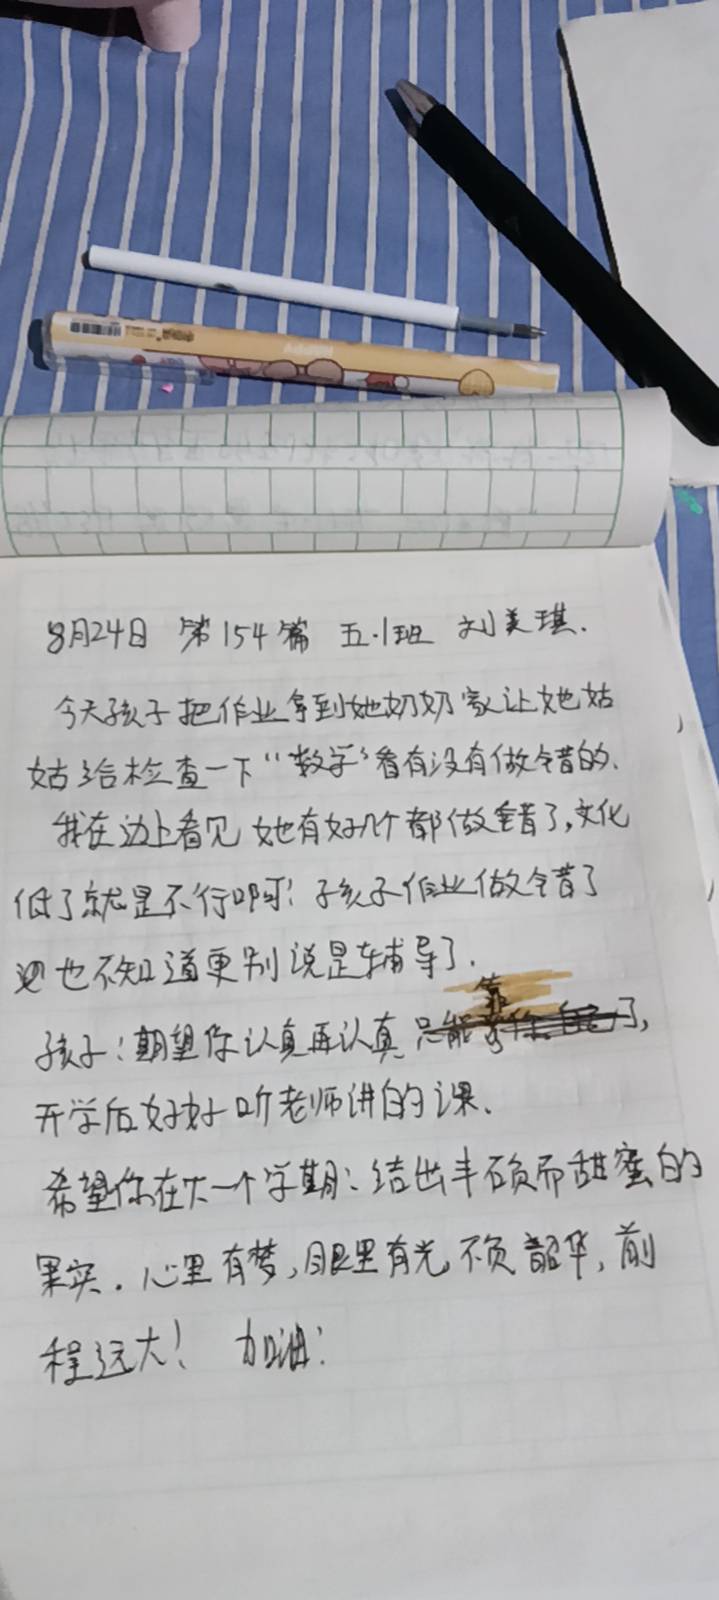 8月24日 第154篇 五.1班 刘美琪.
今天孩子把作业拿到她奶奶家让她姑
姑给检查一下“数学”看有没有做错的、
我在边上看见她有好几个都做错了,文化
低了就是不行啊!孩子作业做错了
也不知道更别说是辅导了.
孩子:期望你认真再认真
开学后好好听老师讲的课、
希望你在下一个学期:结出丰硕而甜蜜的
果实.心里有梦,眼里有光,不负韶华,前
程远大! 加油!